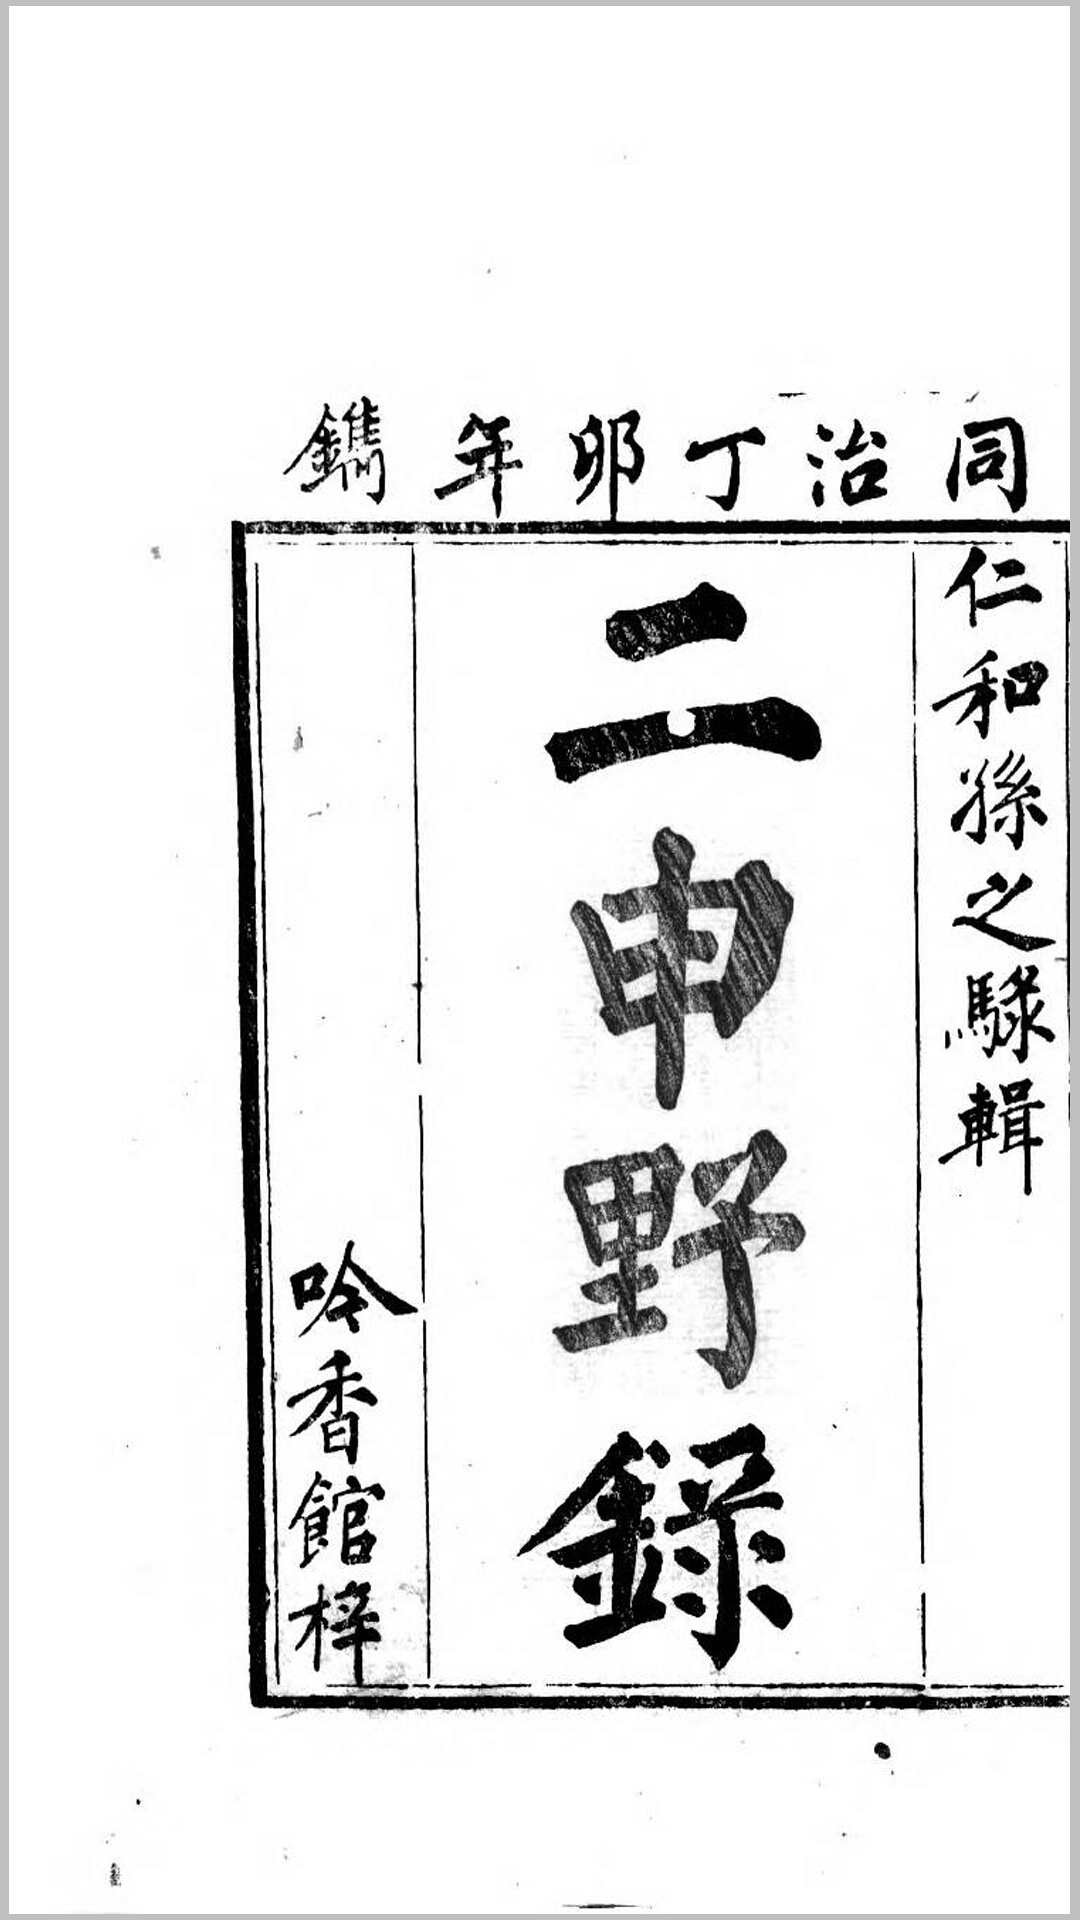 同治丁卯年鐫
仁和孫之騄輯
二申野錄
吟香館梓